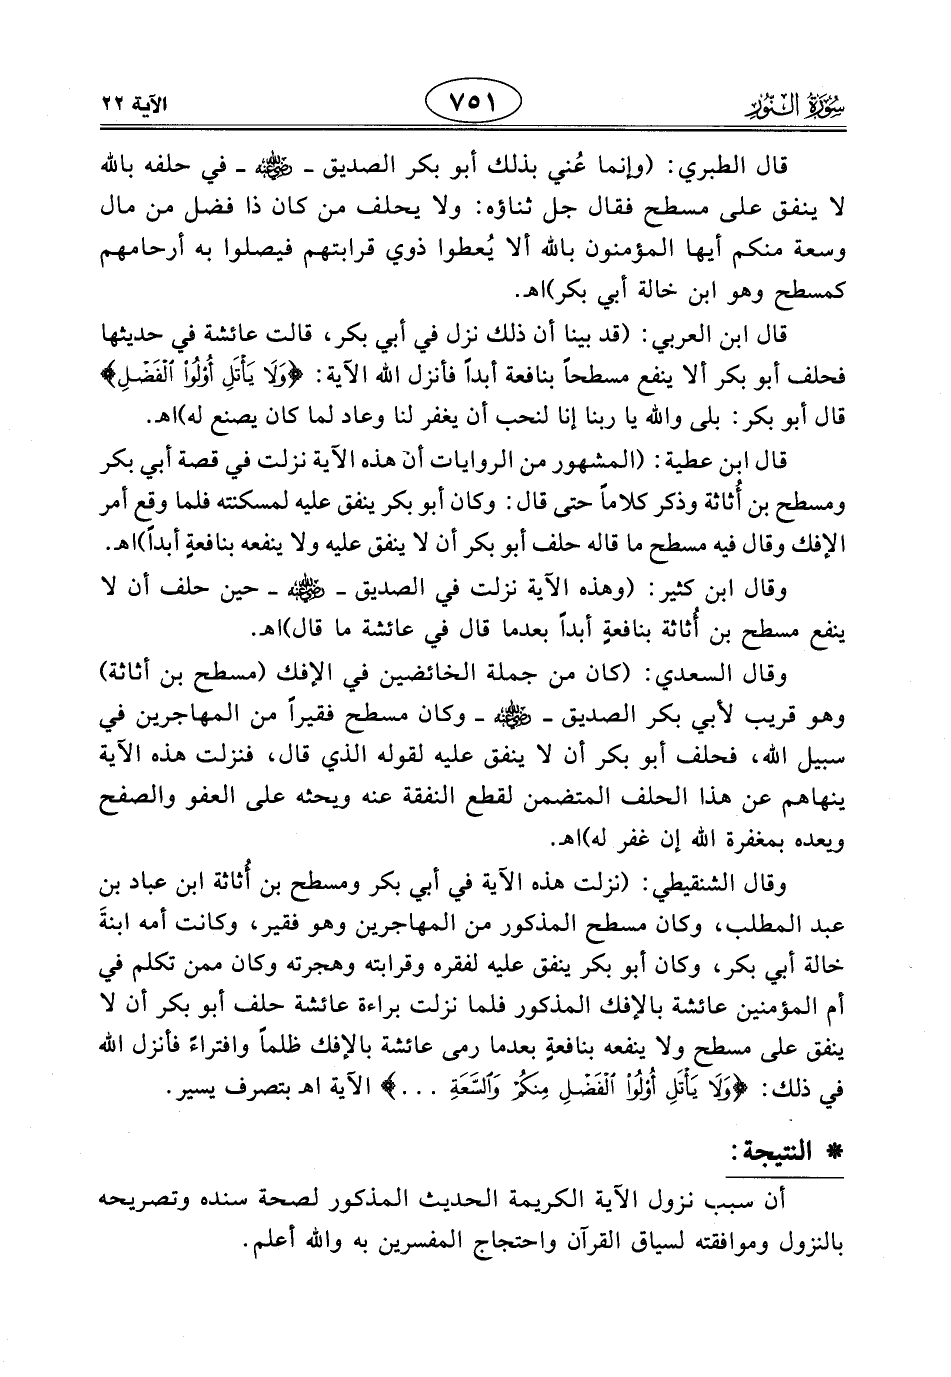 سُورَةُ النُّورِ ٧٥١ الآية ٢٢
قال الطبري: (وإنما عُني بذلك أبو بكر الصديق ـ رضي الله عنه ـ في حلفه بالله
لا ينفق على مسطح فقال جل ثناؤه: ولا يحلف من كان ذا فضل من مال
وسعة منكم أيها المؤمنون بالله ألا يُعطوا ذوي قرابتهم فيصلوا به أرحامهم
كمسطح وهو ابن خالة أبي بكر)اهـ.
قال ابن العربي: (قد بينا أن ذلك نزل في أبي بكر، قالت عائشة في حديثها
فحلف أبو بكر ألا ينفع مسطحاً بنافعة أبداً فأنزل الله الآية: ﴿وَلَا يَأْتَلِ أُوْلُواْ ٱلْفَضْلِ﴾
قال أبو بكر: بلى والله يا ربنا إنا لنحب أن يغفر لنا وعاد لما كان يصنع له)اهـ.
قال ابن عطية: (المشهور من الروايات أن هذه الآية نزلت في قصة أبي بكر
ومسطح بن أُثاثة وذكر كلاماً حتى قال: وكان أبو بكر ينفق عليه لمسكنته فلما وقع أمر
الإفك وقال فيه مسطح ما قاله حلف أبو بكر أن لا ينفق عليه ولا ينفعه بنافعةٍ أبداً)اهـ.
وقال ابن كثير: (وهذه الآية نزلت في الصديق ـ رضي الله عنه ـ حين حلف أن لا
ينفع مسطح بن أُثاثة بنافعةٍ أبداً بعدما قال في عائشة ما قال)اهـ.
وقال السعدي: (كان من جملة الخائضين في الإفك (مسطح بن أثاثة)
وهو قريب لأبي بكر الصديق ـ رضي الله عنه ـ وكان مسطح فقيراً من المهاجرين في
سبيل الله، فحلف أبو بكر أن لا ينفق عليه لقوله الذي قال، فنزلت هذه الآية
ينهاهم عن هذا الحلف المتضمن لقطع النفقة عنه ويحثه على العفو والصفح
ويعده بمغفرة الله إن غفر له)اهـ.
وقال الشنقيطي: (نزلت هذه الآية في أبي بكر ومسطح بن أُثاثة ابن عباد بن
عبد المطلب، وكان مسطح المذكور من المهاجرين وهو فقير، وكانت أمه ابنةَ
خالة أبي بكر، وكان أبو بكر ينفق عليه لفقره وقرابته وهجرته وكان ممن تكلم في
أم المؤمنين عائشة بالإفك المذكور فلما نزلت براءة عائشة حلف أبو بكر أن لا
ينفق على مسطح ولا ينفعه بنافعةٍ بعدما رمى عائشة بالإفك ظلماً وافتراءً فأنزل الله
في ذلك: ﴿وَلَا يَأْتَلِ أُوْلُواْ ٱلْفَضْلِ مِنكُمْ وَٱلسَّعَةِ ...﴾ الآية اهـ بتصرف يسير.
* النتيجة:
أن سبب نزول الآية الكريمة الحديث المذكور لصحة سنده وتصريحه
بالنزول وموافقته لسياق القرآن واحتجاج المفسرين به والله أعلم.